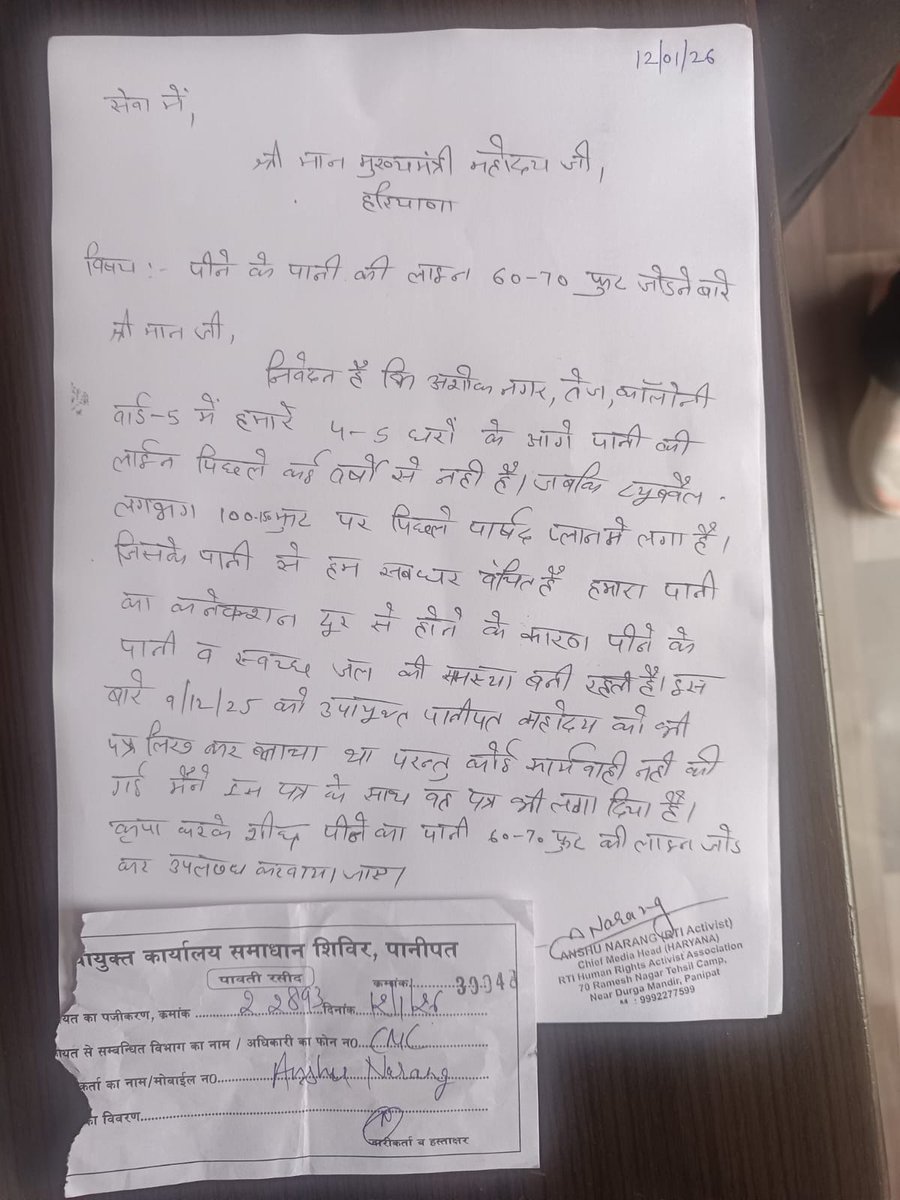 12/01/26
सेवा में,
श्री मान मुख्यमंत्री महोदय जी,
हरियाणा
विषय :- पीने के पानी की लाइन 60-70 फुट जोडने बारे
श्री मान जी,
निवेदन है कि अशोक नगर, तेज, कॉलोनी
वार्ड-5 में हमारे 4-5 घरों के आगे पानी की
लाईन पिछले कई वर्षों से नही है। जबकि ट्यूबवैल
लगभग 100-150 फुट पर पिछले पार्षद प्लान मे लगा है।
जिसके पानी से हम सब घर वंचित है हमारा पानी
का कनेक्शन दूर से होने के कारण पीने के
पानी व स्वच्छ जल की समस्या बनी रहती है। इस
बारे 9/12/25 को उपायुक्त पानीपत महोदय को भी
पत्र लिख कर बताया था परन्तु कोई कार्यवाही नही की
गई मैंने इस पत्र के साथ वह पत्र भी लगा दिया है।
कृपा करके शीघ्र पीने का पानी 60-70 फुट की लाइन जोड
कर उपलब्ध करवाया जाए।
Narang
ANSHU NARANG (RTI Activist)
Chief Media Head (HARYANA)
RTI Human Rights Activist Association
70 Ramesh Nagar Tehsil Camp,
Near Durga Mandir, Panipat
M : 9992277599
ायुक्त कार्यालय समाधान शिविर, पानीपत
पावती रसीद
कमांक 39043
यत का पजीकरण, कमांक 22893 दिनांक 12/1/26
ायत से सम्बन्धित विभाग का नाम / अधिकारी का फोन न0 CMC
कर्ता का नाम/मोबाईल न0 Anshu Narang
का विवरण
जारीकर्ता व हस्ताक्षर